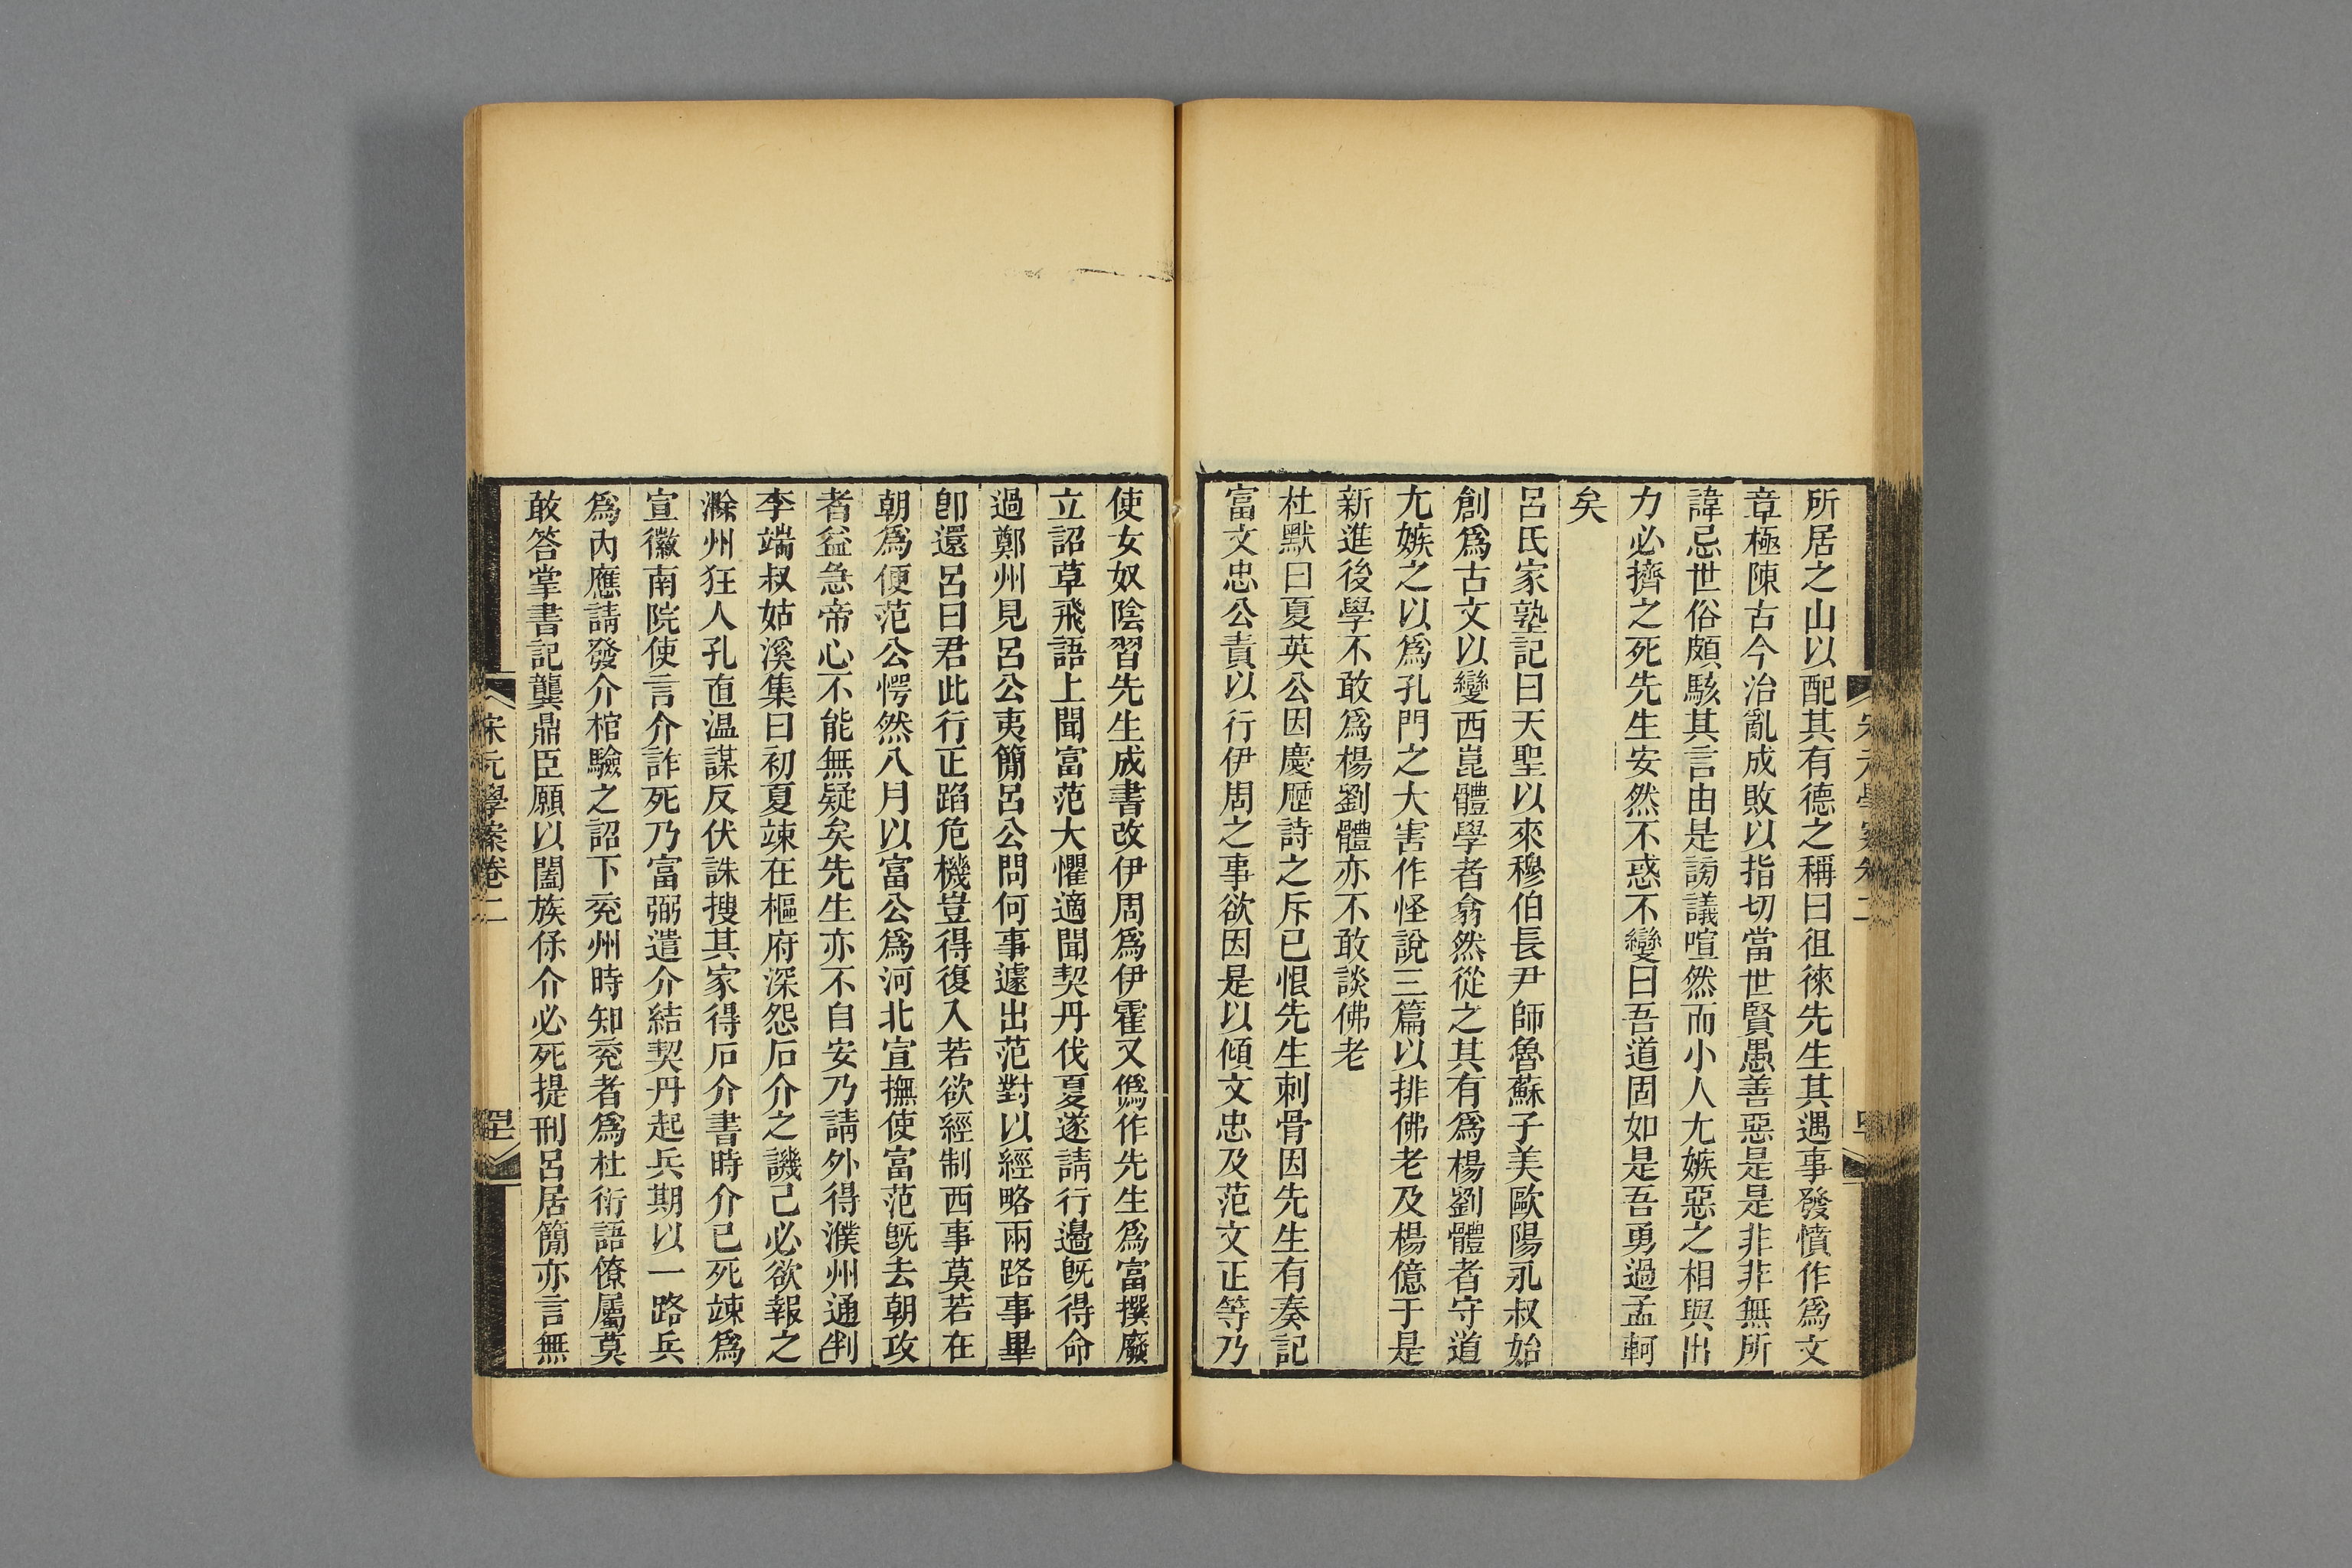 所居之山以配其有德之稱曰徂徠先生其遇事發憤作爲文
章極陳古今治亂成敗以指切當世賢愚善惡是是非非無所
諱忌世俗頗駭其言由是謗議喧然而小人尤嫉惡之相與出
力必擠之死先生安然不惑不變曰吾道固如是吾勇過孟軻
矣
呂氏家塾記曰天聖以來穆伯長尹師魯蘇子美歐陽永叔始
創爲古文以變西崑體學者翕然從之其有爲楊劉體者守道
尤嫉之以爲孔門之大害作怪說三篇以排佛老及楊億于是
新進後學不敢爲楊劉體亦不敢談佛老
杜默曰夏英公因慶歷詩之斥已恨先生刺骨因先生有奏記
富文忠公責以行伊周之事欲因是以傾文忠及范文正等乃
使女奴陰習先生成書改伊周爲伊霍又僞作先生爲富撰廢
立詔草飛語上聞富范大懼適聞契丹伐夏遂請行邊旣得命
過鄭州見呂公夷簡呂公問何事遽出范對以經略兩路事畢
卽還呂曰君此行正蹈危機豈得復入若欲經制西事莫若在
朝爲便范公愕然八月以富公爲河北宣撫使富范旣去朝攻
者益急帝心不能無疑矣先生亦不自安乃請外得濮州通判
李端叔姑溪集曰初夏竦在樞府深怨石介之譏己必欲報之
滁州狂人孔直温謀反伏誅搜其家得石介書時介已死竦爲
宣徽南院使言介詐死乃富弼遣介結契丹起兵期以一路兵
爲內應請發介棺驗之詔下兖州時知兖者爲杜衍語僚屬莫
敢答掌書記龔鼎臣願以闔族保介必死提刑呂居簡亦言無
宋元學案卷二